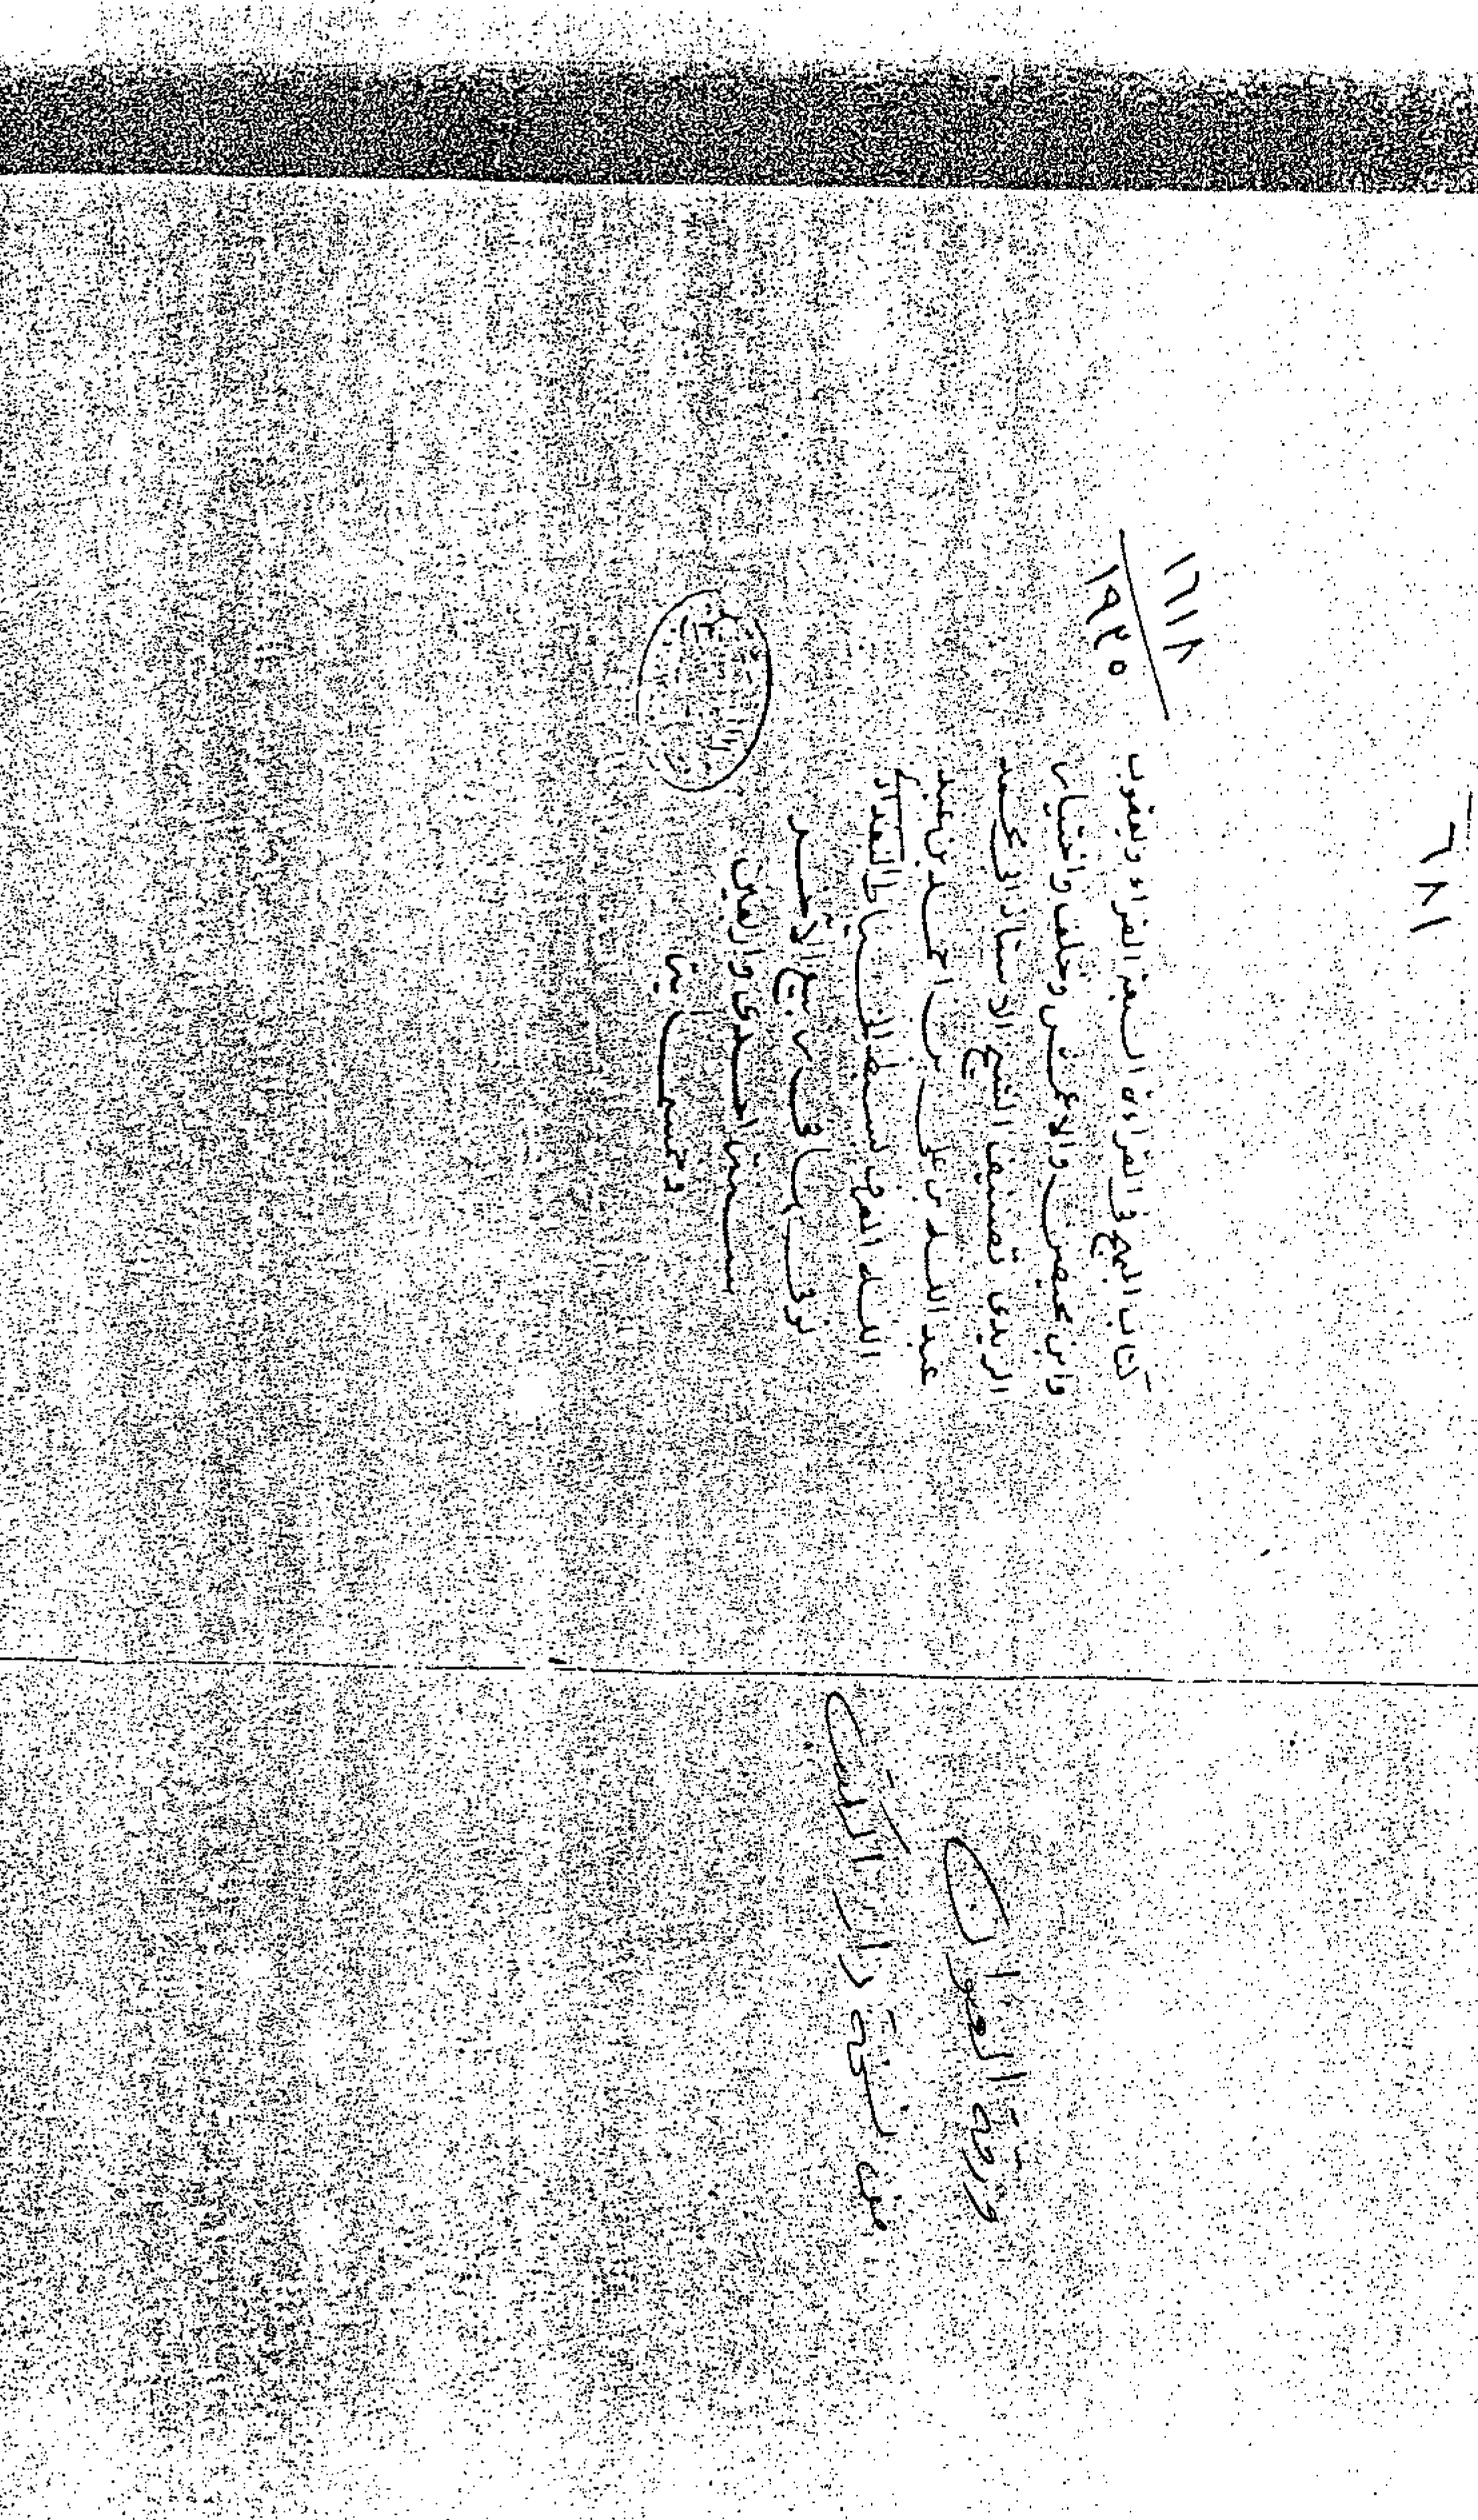 ٦٨١
١٦١٨
١٩٢٥
كتاب المبهج فى القراءة السبعة القراء ويعقوب
وابن محيصن والاعمش وخلف واختيار
اليزيدى تصنيف الشيخ الاستاذ ابى محمد
عبد الله بن على بن احمد بن عبد
الله المعروف بسبط الخياط البغدادى
توفى فى ربيع الآخر
سنة احدى واربعين
وخمس مائة
ورقة العنوان
من نسخة دار الكتب